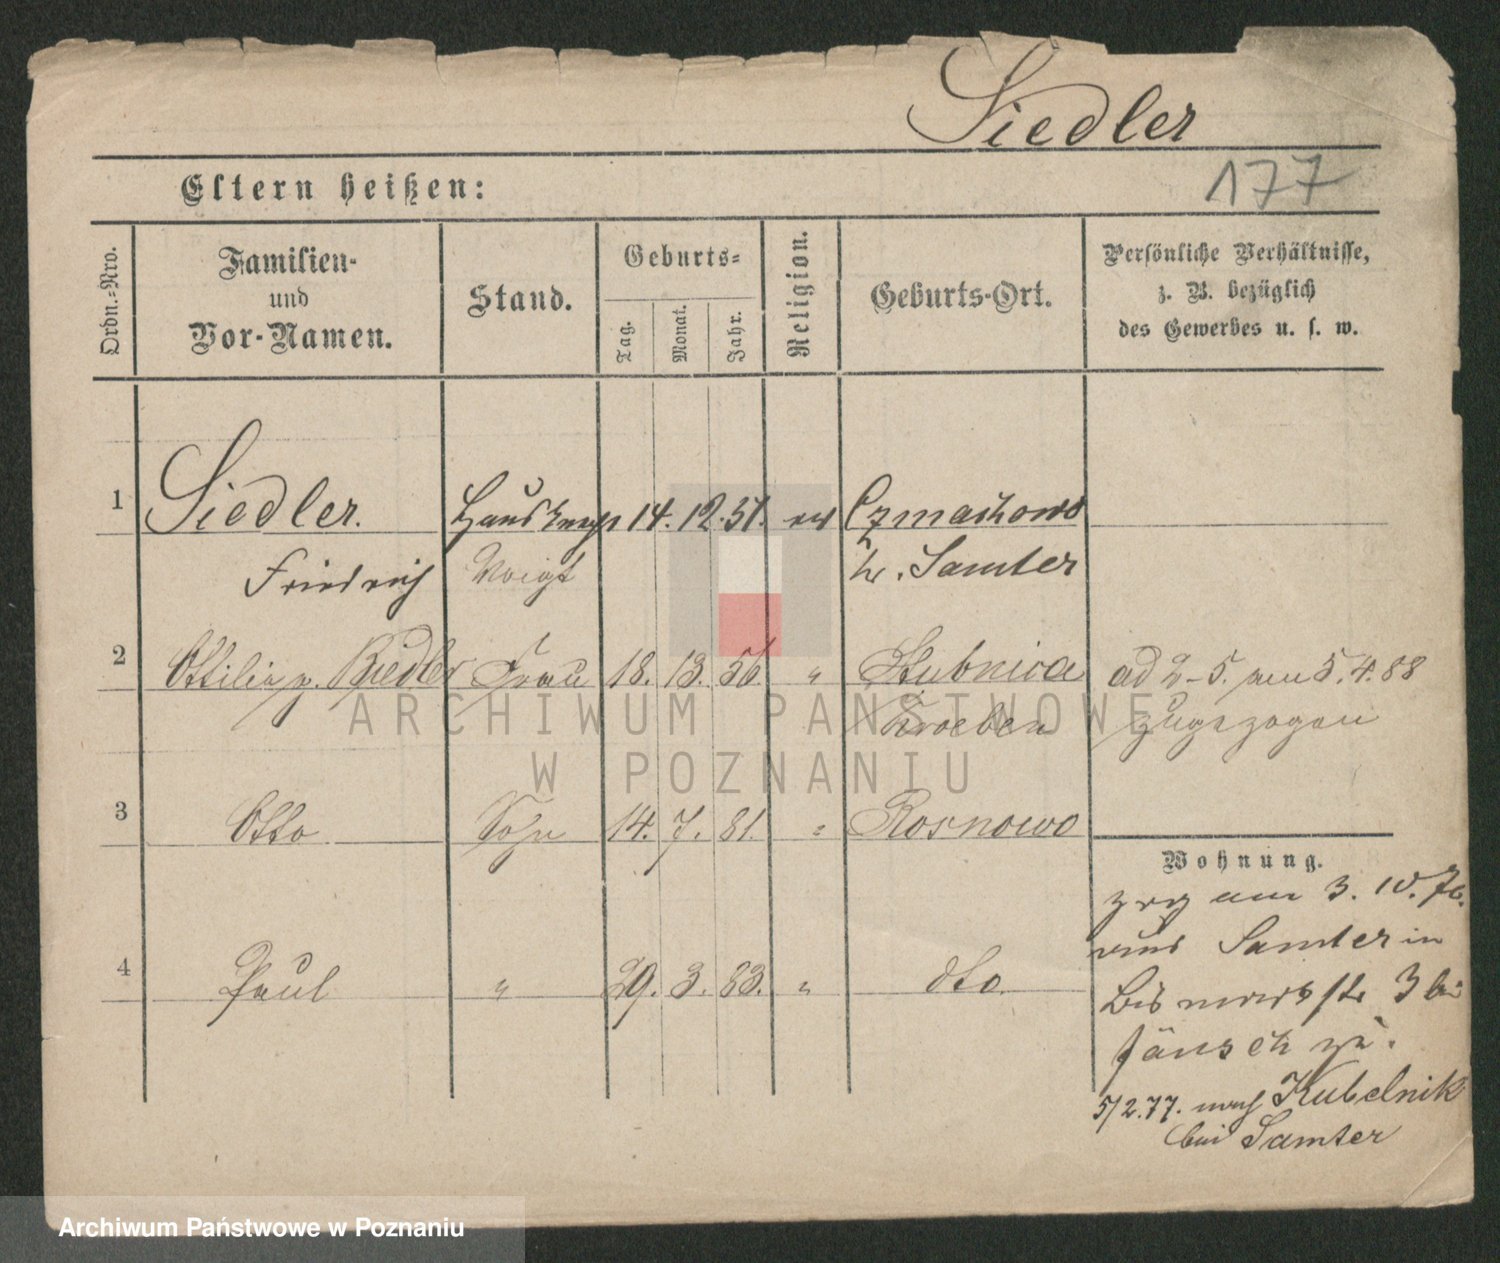 Siedler
177
Eltern heißen:
Ordn.-Nro.
Familien- und Vor-Namen.
Stand.
Geburts-
Tag.
Monat.
Jahr.
Religion.
Geburts-Ort.
Persönliche Verhältnisse,
z. B. bezüglich
des Gewerbes u. s. w.
1 Siedler. 14. 12. 51. ev Czmachowo
Friedrich Voigt Kr. Samter
2 Ottilie g. Riedler Frau 18. 13. 56. " ad 2-5. am 5.4.88
Kroeben zugezogen
3 Otto Sohn 14. 7. 81. " Rosnowo
4 Paul " 29. 3. 83. " dto.
Wohnung.
zog am 3. 10. 76.
aus Samter in
Bismarkstr 3 bei
Jänsch zu.
5/2.77. nach Kubelnik
bei Samter
ARCHIWUM PAŃSTWOWE
W POZNANIU
Archiwum Państwowe w Poznaniu